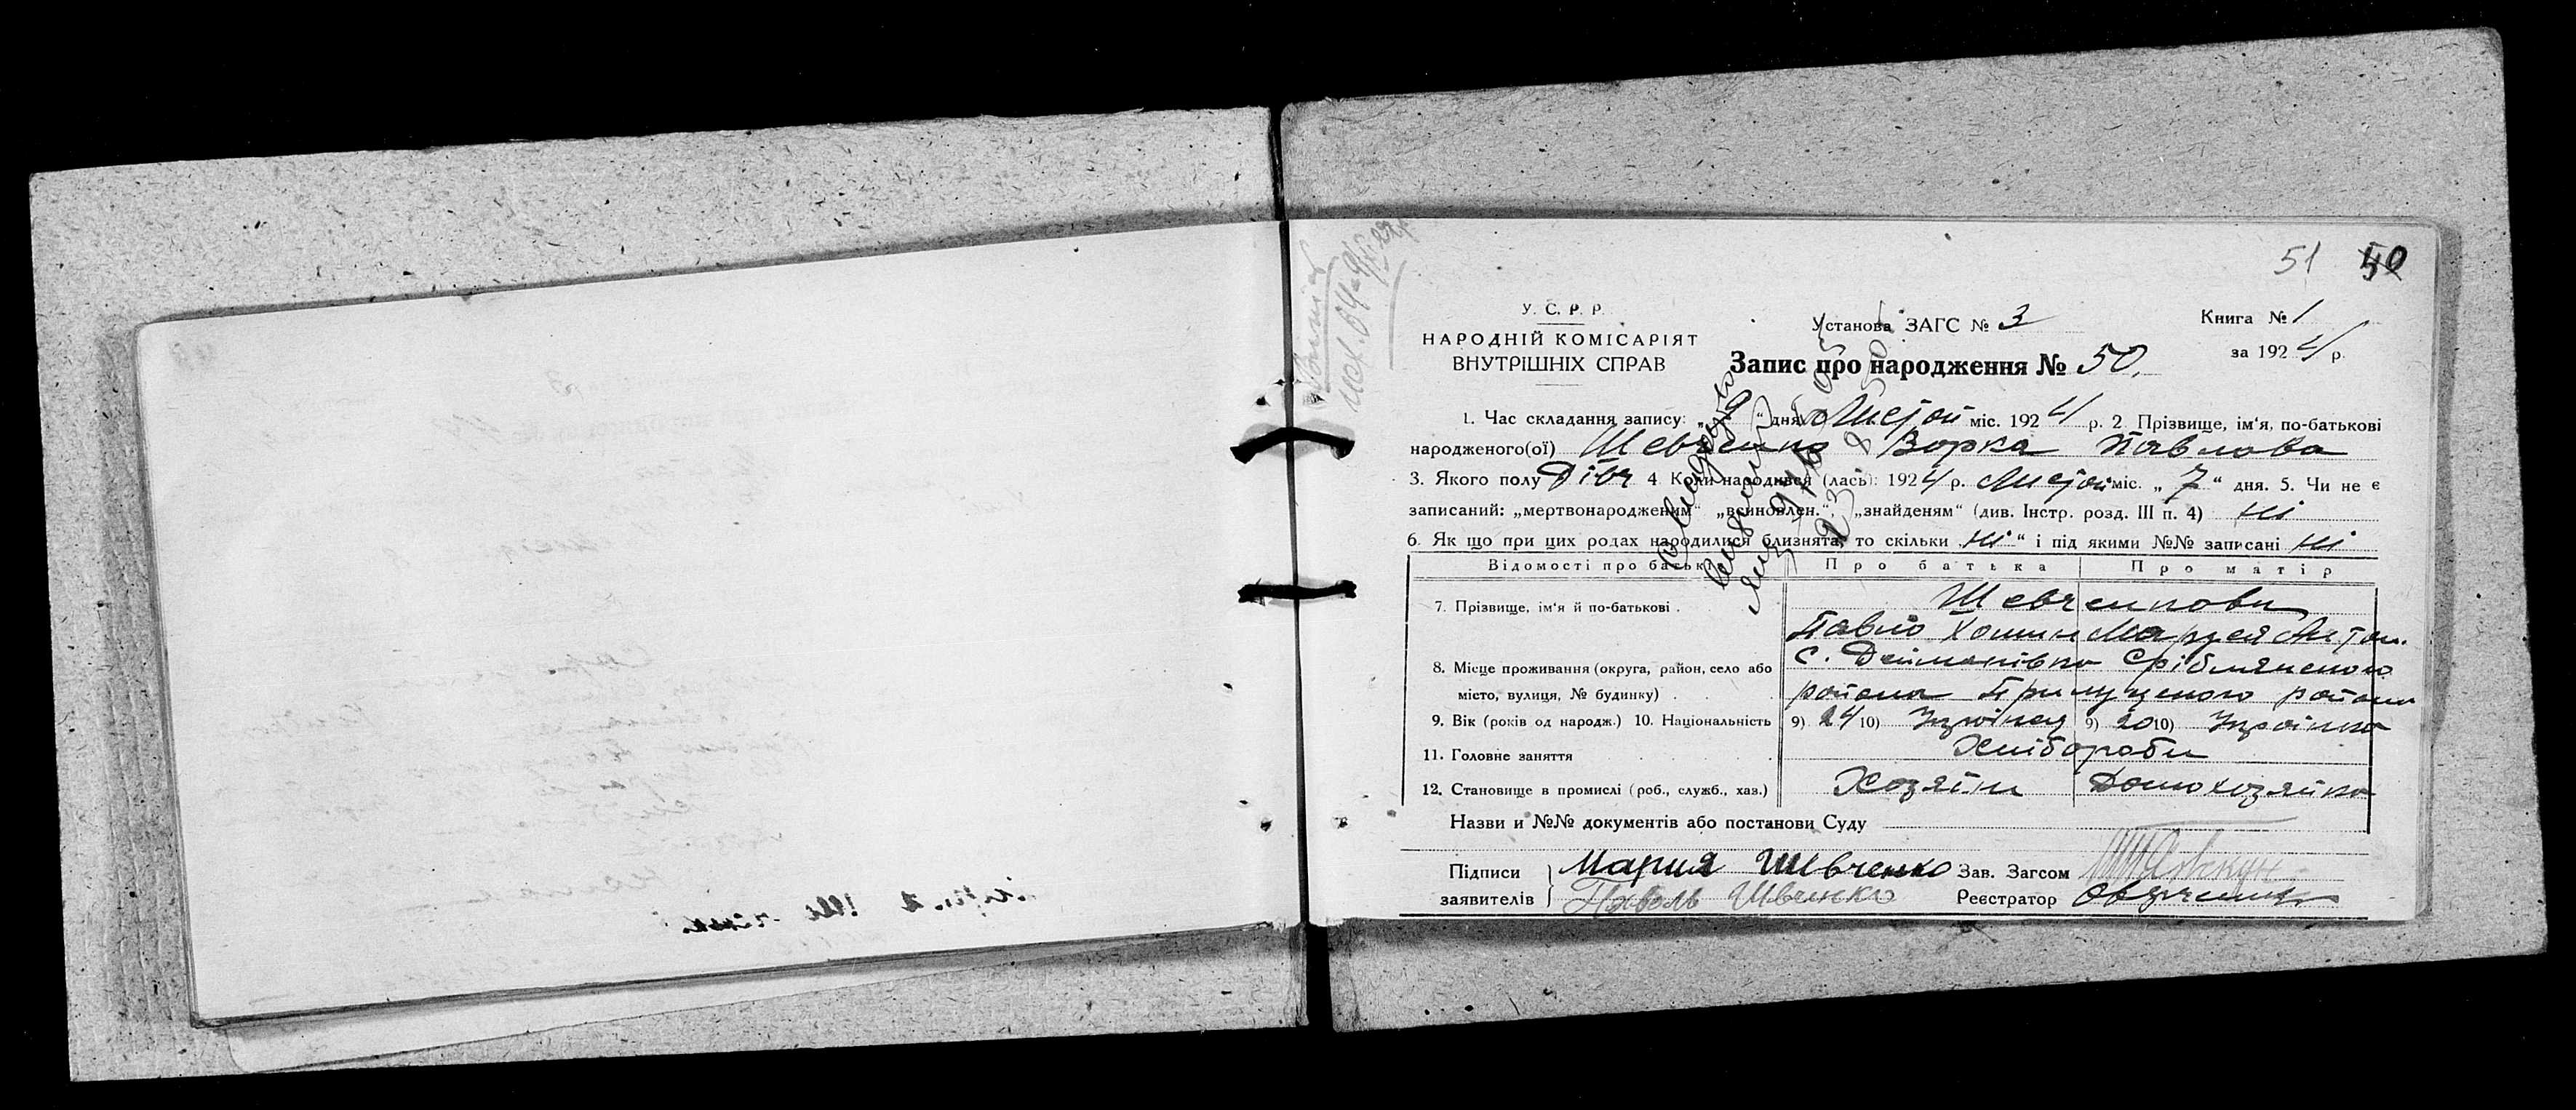 51 50
У. С. Р. Р.
НАРОДНІЙ КОМІСАРІЯТ
ВНУТРІШНІХ СПРАВ
Установа ЗАГС № 3
Книга № 1
за 1924 р.
Запис про народження № 50.
1. Час складання запису: „9“ дня міс. 1924 р. 2 Прізвище, ім'я, по-батькові
народженого(ої) Шевченко Ворка Павлова
3. Якого полу Дівч 4 Коли народився (лась): 1924 р. міс. „7“ дня. 5. Чи не є
записаний: „мертвонародженим“ „всиновлен.“, „знайденям“ (див. Інстр. розд. III п. 4) ні
6. Як що при цих родах народилися близнята, то скільки „ні“ і під якими №№ записані ні
Відомості про батьків Про батька Про матір
7. Прізвище, ім'я й по-батькові . Шевченкови
Павло Хомин Маруся Антон.
8. Місце проживання (округа, район, село або С. Дейманівка Срібнянского
місто, вулиця, № будинку) . . района Прилуцкого района
9. Вік (років од народж.) 10. Національність 9) 24 10) Українец 9) 20 10) Українка
11. Головне заняття Хлібороби
12. Становище в промислі (роб., служб., хаз.) Хозяїн Домохозяйка
Назви и №№ документів або постанови Суду
Підписи Мария Шивченко Зав. Загсом
заявителів Паволь Шивченко Реєстратор